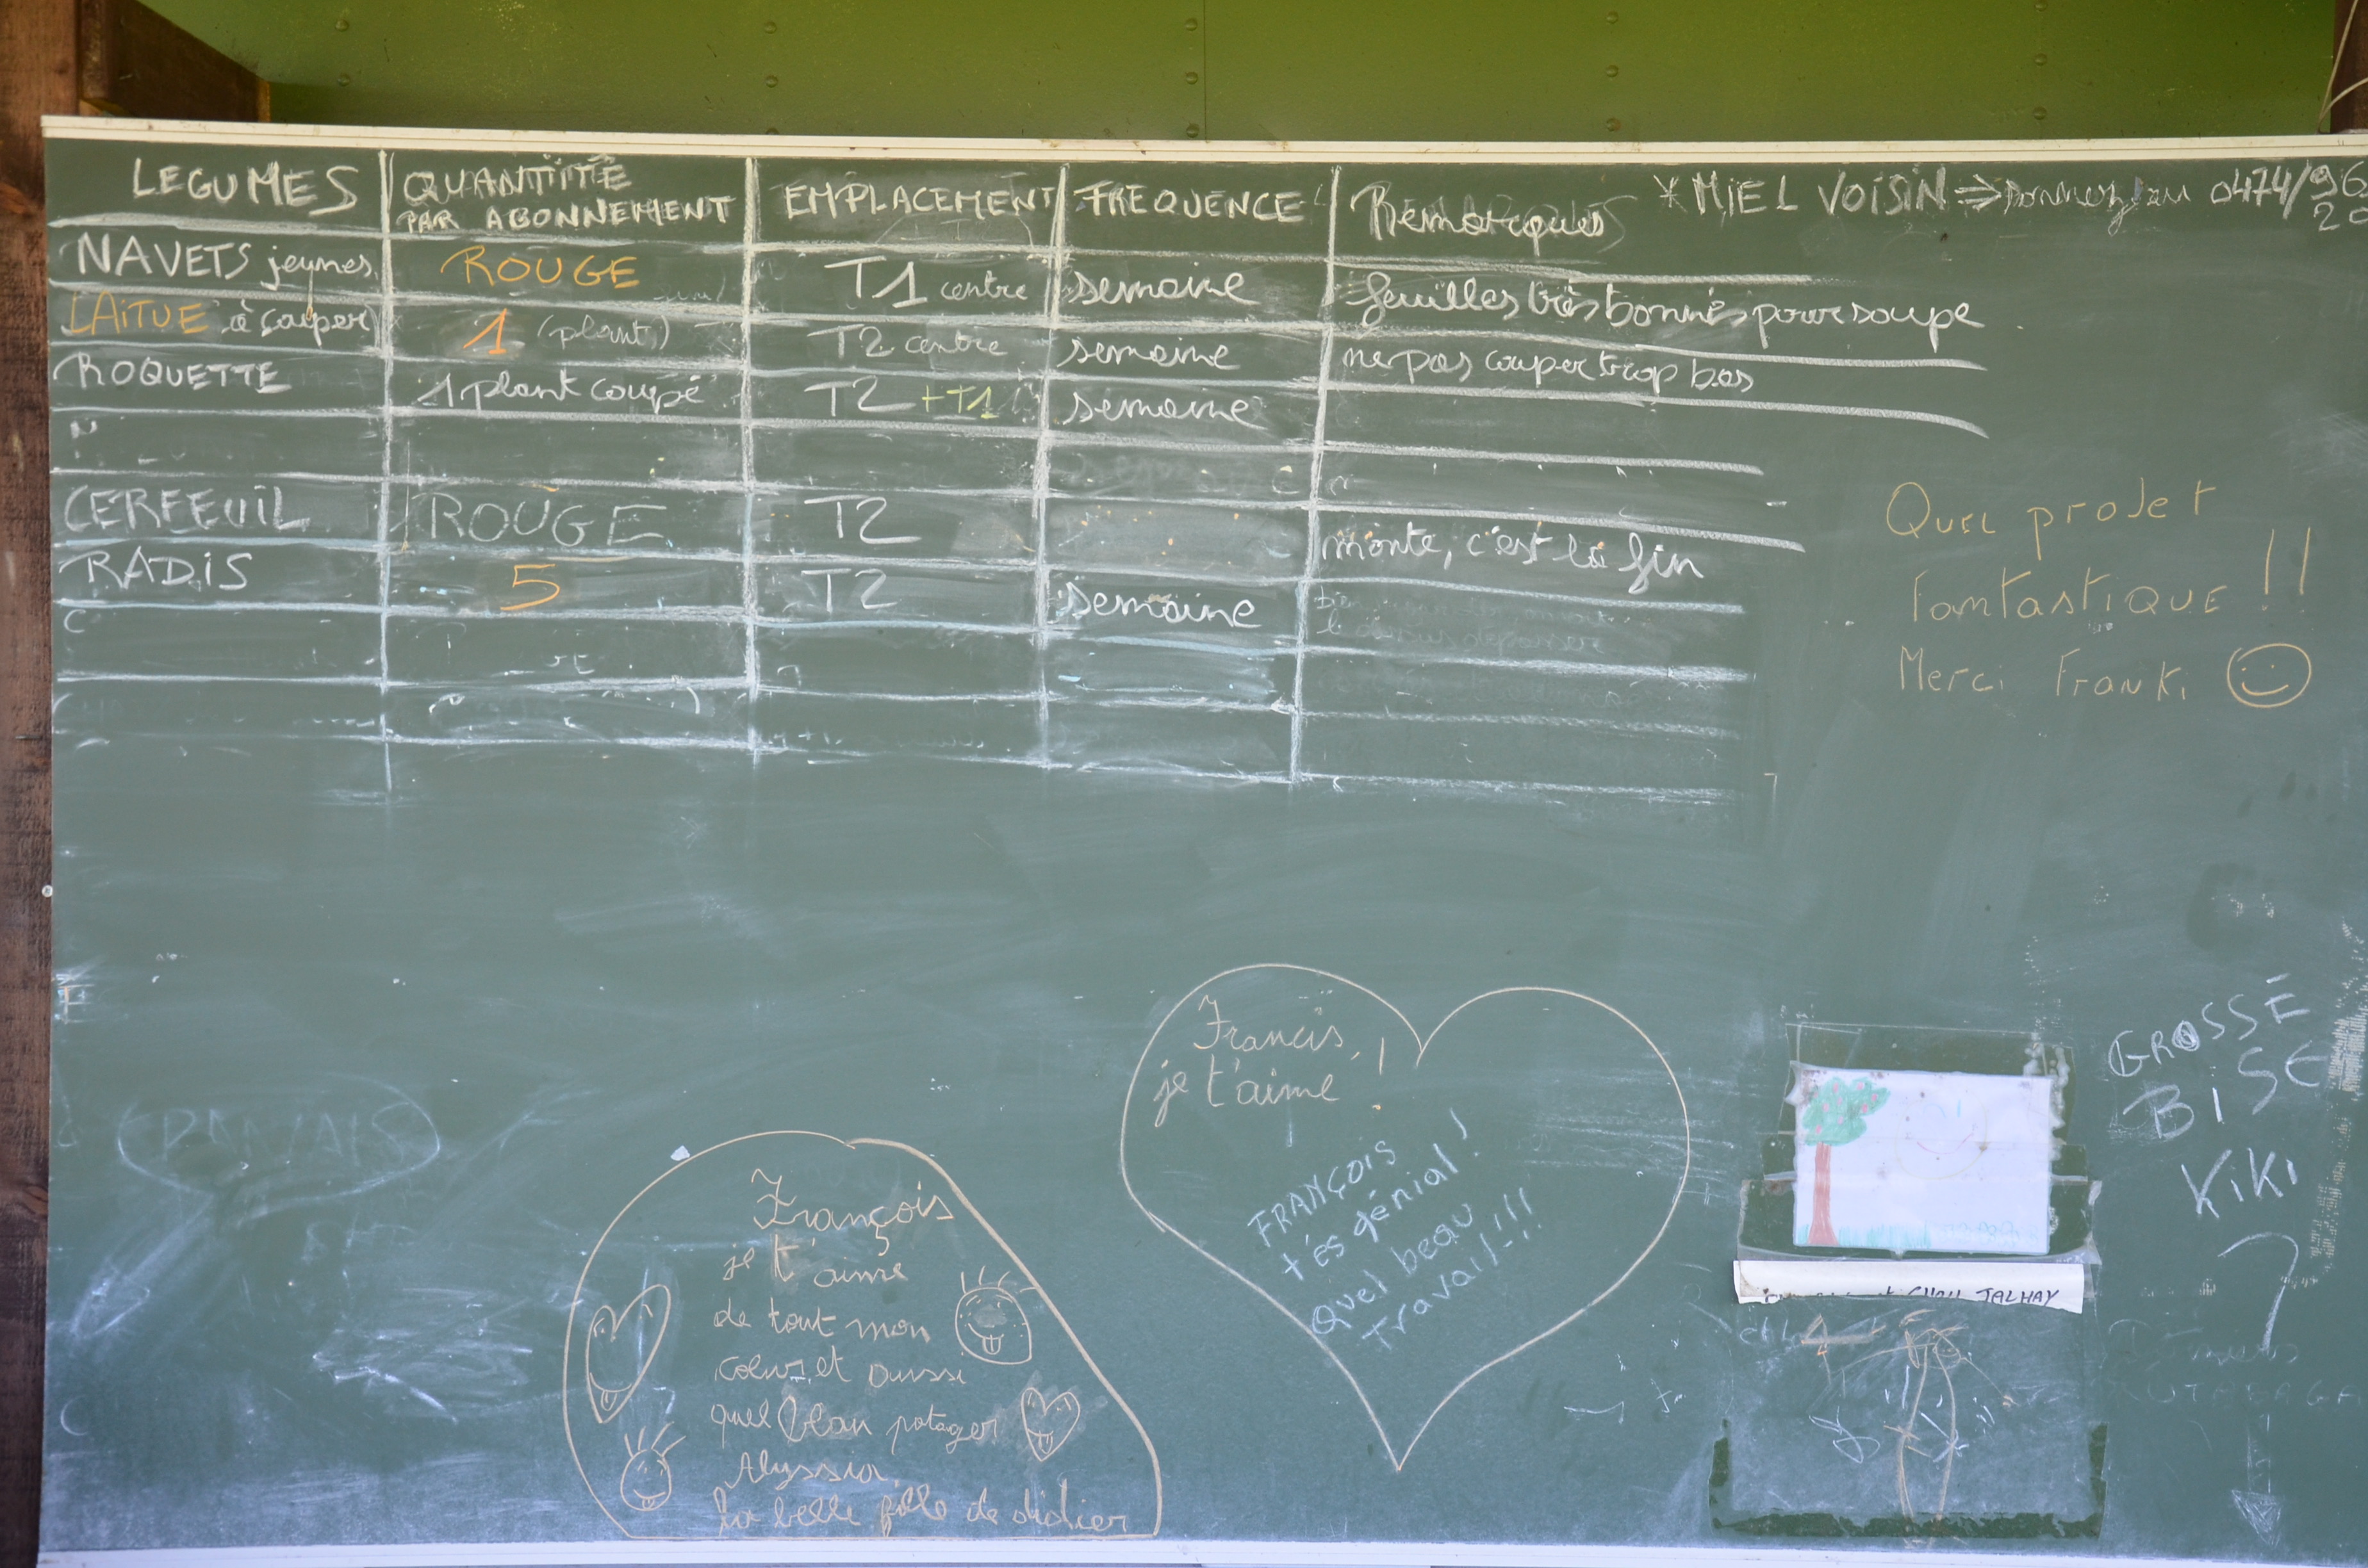 LEGUMES QUANTITÉ PAR ABONNEMENT EMPLACEMENT FREQUENCE Remarques
* MIEL VOISIN ⇒ 0474/96
20
NAVETS jeunes ROUGE T1 centre semaine feuilles très bonnes pour soupe
LAITUE à couper) 1 (plant) T2 centre semaine ne pas couper trop bas
ROQUETTE 1 plant coupé T2 +T1 semaine
CERFEUIL ROUGE T2 monte, c'est la fin
RADIS 5 T2 semaine
Quel projet
fantastique !!
Merci Franki
Francis,
je t'aime !
FRANÇOIS
t'es génial !
Quel beau
travail !!!
François
je t'aime
de tout mon
coeur et aussi
quel beau potager
Alyssia
la belle fille de didier
GROSSE
BISE
KiKi
JALHAY